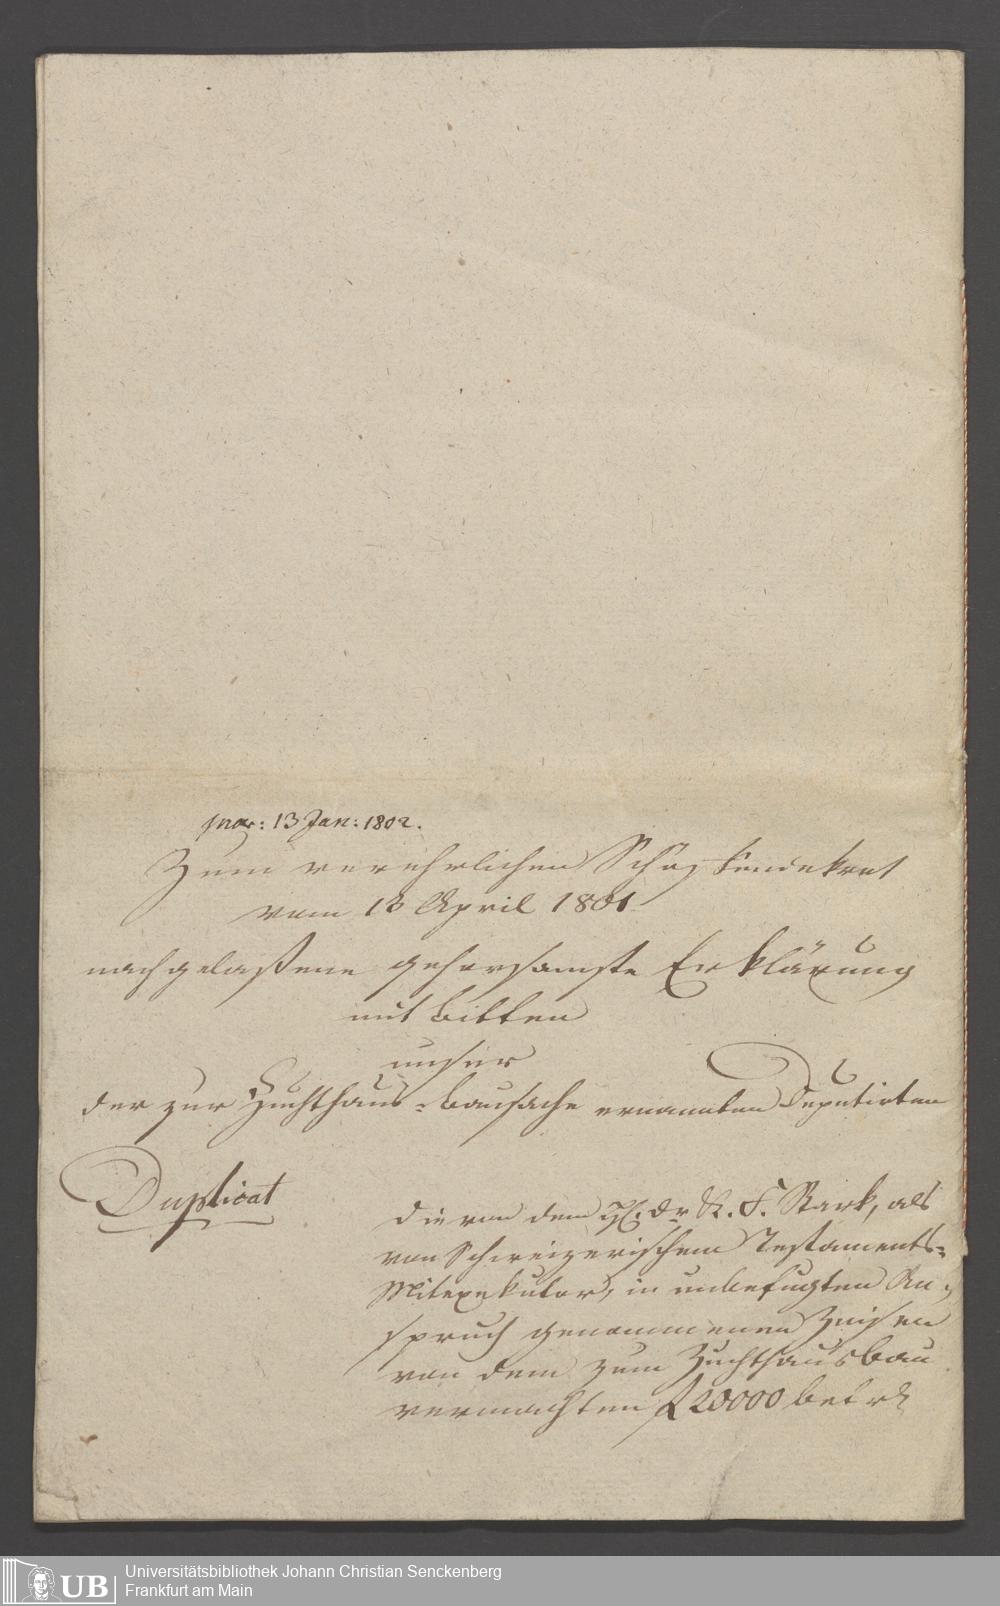 pns: 13 Jan: 1802.
Zum verehrlichen Schöffendekret
vom 13 April 1801
nachgelaßene gehorsamste Erklärung
mit Bitten
unser
der zur Zuchthaus-Bausache ernannten Deputirten
Duplicat
die von dem H. Dr. F. Stark, als
von Schweizerischem Testaments-
Mitexekutor, in unbefugten An-
spruch genommenen Zinsen
von dem zum Zuchthausbau
vermachten f 20000 betr.
Universitätsbibliothek Johann Christian Senckenberg
Frankfurt am Main
UB